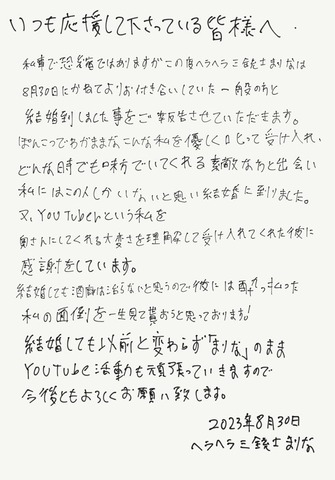 いつも応援して下さっている皆様へ
私事で恐縮ではありますがこの度ヘラヘラ三銃士まりなは
8月30日にかねてよりお付き合いしていた一般の方と
結婚致しました事をご報告させていただきます。
ぽんこつでわがままなこんな私を優しく叱って受け入れ、
どんな時でも味方でいてくれる素敵な方と出会い
私にはこの人しかいないと思い結婚に到りました。
又、YouTuberという私を
奥さんにしてくれる大変さを理解して受け入れてくれた彼に
感謝をしています。
結婚しても酒癖は治らないと思うので彼には酔っ払った
私の面倒を一生見て貰おうと思っております!
結婚しても以前と変わらず「まりな」のまま
YouTube活動も頑張っていきますので
今後ともよろしくお願い致します。
2023年8月30日
ヘラヘラ三銃士まりな